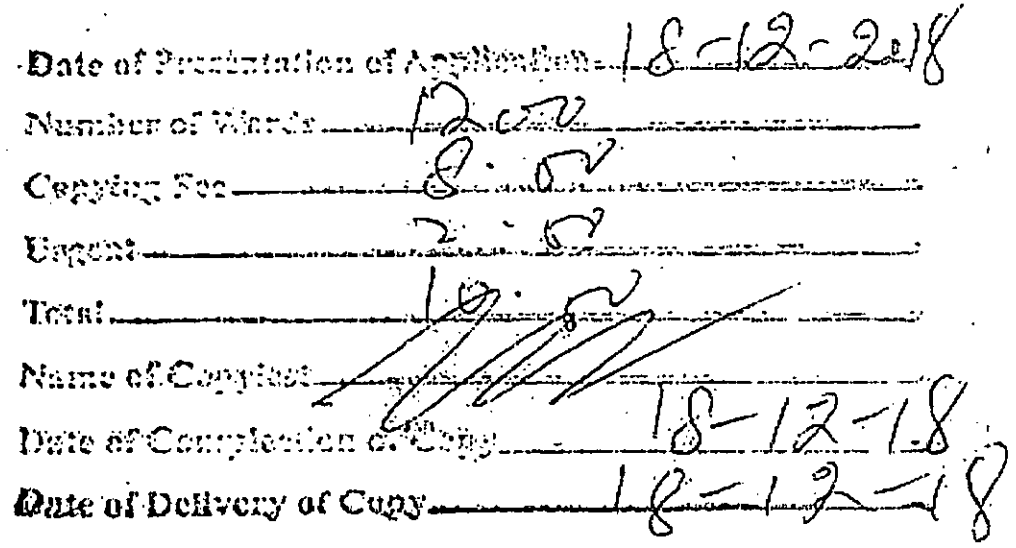 Date of Presentation of Application 18-12-2018
Number of Words 1200
Copying Fee 8.00
Urgent 2.00
Total 10.00
Name of Copyiest
Date of Complection of Copy 18-12-18
Date of Delivery of Copy 18-12-18